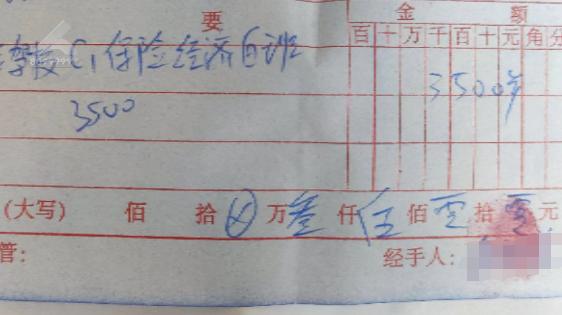 要 金 额
百 十 万 千 百 十 元 角 分
学校C1保险经济白班
3500
3500
(大写) 佰 拾 ⊗ 万 叁 仟 伍 佰 零 拾 零 元
管: 经手人: